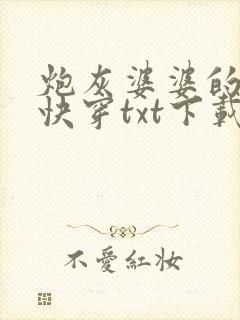 炮灰婆婆的
快穿txt下載
不愛紅妝